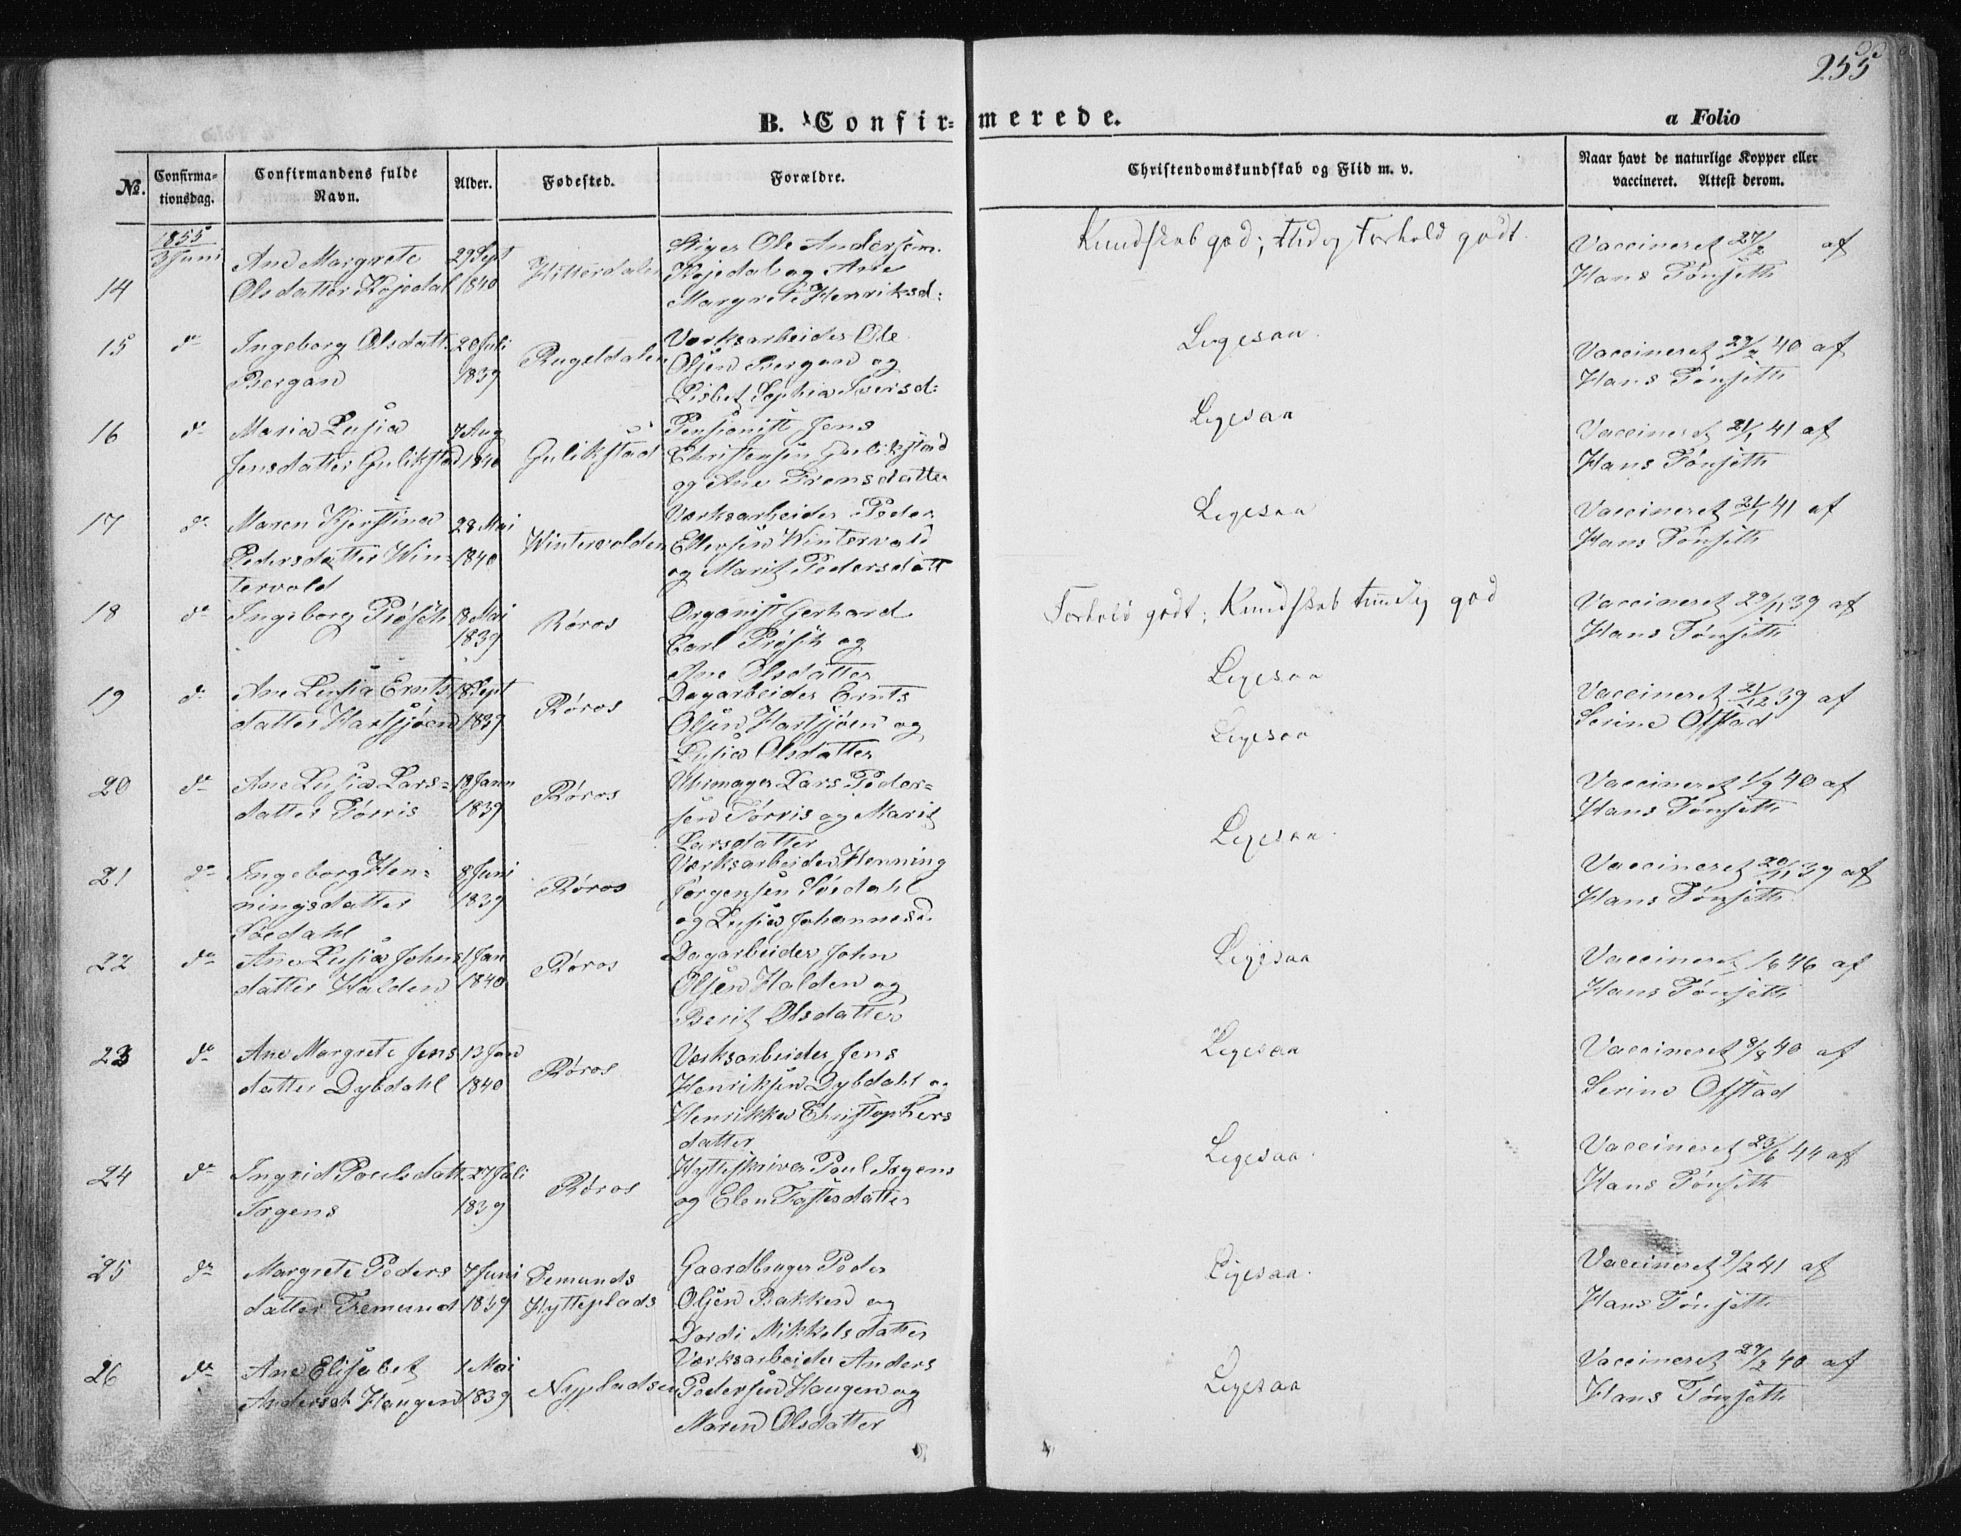 255
B. Confir=merede.
a Folio
No.
Confirma-
tionsdag.
Confirmandens fulde
Navn.
Alder.
Fødested.
Forældre.
Christendomskundskab og Flid m. v.
Naar havt de naturlige Kopper eller
vaccineret. Attest derom.
1855
14 3 Juni
Ane Margrete
Olsdatter Kojedal
29 Sept
1840
Hitterdalen
Stiger Ole Andersen
Kojedal og Ane
Margrete Henriksd:
Kundskab god; Flid og Forhold godt.
Vaccineret 27/2 af
Hans Tønseth
15 do
Ingeborg Olsdatt
Bergan
20 Juli
1839
Rugeldalen
Værksarbeider Ole
Olsen Bergan og
Lisbet Sophia Iversd:
Ligesaa.
Vaccineret 29/2 40 af
Hans Tønseth
16 do
Maria Lusia
Jensdatter Gulikstad
7 Aug
1840
Gulikstad
Pensionist Jens
Christensen Gulikstad
og Ane Fremsdatter
Ligesaa
Vaccineret 21/1 41 af
Hans Tønseth
17 do
Maren Kjerstina
Pedersdatter Win=
tervold
28 Mai
1840
Wintervolden
Værksarbeider Peder
Ellevsen Wintervold
og Marit Pedersdatt
Ligesaa
Vaccineret 21/1 41 af
Hans Tønseth
18 do
Ingeborg Prøsch
18 Mai
1839
Røros
Organist Gerhard
Carl Prøsch og
Ane Olsdatter
Forhold godt; Kundskab temelig god
Vaccineret 29/11 39 af
Hans Tønseth
19 do
Ane Lusia Ernts
datter Harsjøen
18 Sept
1839
Røros
Dagarbeider Ernts
Olsen Harsjøen og
Lusia Olsdatter
Ligesaa
Vaccineret 21/12 39 af
Serine Offstad
20 do
Ane Lusia Lars=
datter Tørris
19 Jann
1839
Røros
Uhrmager Lars Peder=
sen Tørris og Marit
Larsdatter
Ligesaa
Vaccineret 1/9 40 af
Hans Tønseth
21 do
Ingeborg Hen=
ningsdatter
Søedahl
8 Juni
1839
Røros
Værksarbeider Henning
Jørgensen Søedahl
og Lusia Johannesd.
Ligesaa.
Vaccineret 20/11 39 af
Hans Tønseth
22 do
Ane Lusia Johns
datter Halden
1 Jan
1840
Røros
Dagarbeider John
Olsen Halden og
Berit Olsdatter
Ligesaa
Vaccineret 1/6 46 af
Hans Tønseth
23 do
Ane Margrete Jens
datter Dybdahl
13 Jan
1840
Røros
Værksarbeider Jens
Henriksen Dybdahl og
Henrikke Christophers
datter
Ligesaa
Vaccineret 8/8 40 af
Serine Offstad
24 do
Ingrid Poulsdatt.
Irgens
27 Juli
1839
Røros
Hytteskriver Poul Irgens
og Elen Tostesdatter
Ligesaa.
Vaccineret 23/6 44 af
Hans Tønseth
25 do
Margrete Peders
datter Femund
7 Juni
1839
Femunds
Hytteplads
Gaardbruger Peder
Olsen Bakken og
Dordi Mikkelsdatter
Ligesaa.
Vaccineret 9/2 41 af
Hans Tønseth
26 do
Ane Elisabet
Andersdt Haugen
1 Mai
1839
Nypladsen
Værksarbeider Anders
Pedersen Haugen og
Maren Olsdatter
Ligesaa
Vaccineret 29/2 40 af
Hans Tønseth